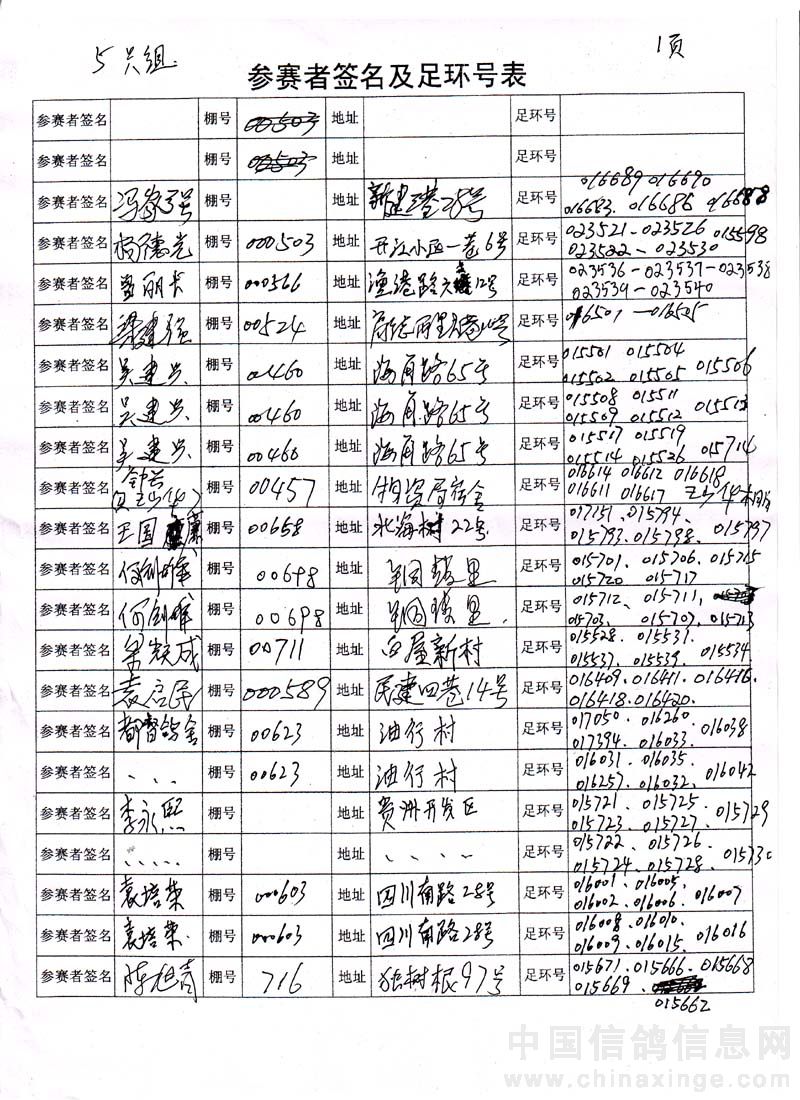 5只组
1页
参赛者签名及足环号表
参赛者签名 棚号 地址 足环号
参赛者签名 棚号 地址 足环号
016689 016690
参赛者签名 冯 强 棚号 地址 新建 28号 足环号 016683. 016686 016688
参赛者签名 杨德光 棚号 000503 地址 开江小区一巷6号 足环号 023521-023526 015598
023522-023530
参赛者签名 丽 棚号 000566 地址 渔港路六巷12号 足环号 023536-023537-023538
023539-023540
参赛者签名 梁建强 棚号 00524 地址 足环号 016501-016505
参赛者签名 吴建兴 棚号 00460 地址 海角路65号 足环号 015501 015504 015506
015502 015505
参赛者签名 吴建兴 棚号 00460 地址 海角路65号 足环号 015508 015511 015513
015509 015512
参赛者签名 吴建兴 棚号 00460 地址 海角路65号 足环号 015517 015519
015514 015526 015714
参赛者签名 棚号 00457 地址 物资局宿舍 足环号 016614 016612 016618
016611 016617
参赛者签名 王国 棚号 00658 地址 北海村22号 足环号 017151. 015794.
015793. 015798. 015797
参赛者签名 何剑雄 棚号 00698 地址 足环号 015701. 015706. 015715
015720 015717
参赛者签名 何剑雄 棚号 00698 地址 足环号 015712、015711,
015703. 015707. 015713
参赛者签名 成 棚号 00711 地址 白屋新村 足环号 015528. 015531.
015537. 015539. 015534
参赛者签名 袁启民 棚号 000589 地址 民建四巷14号 足环号 016409. 016411. 016416.
016418. 016420.
参赛者签名 都督鸽舍 棚号 00623 地址 油行村 足环号 017050. 016260. 016038
017394. 016033.
参赛者签名 、、、 棚号 00623 地址 油行村 足环号 016031. 016035.
016257. 016032. 016042
参赛者签名 李永熙 棚号 地址 贵州开发区 足环号 015721. 015725.
015723. 015727. 015729
参赛者签名 、、、、、 棚号 地址 、、、、 足环号 015722. 015726.
015724. 015728. 015730
参赛者签名 袁培荣 棚号 000603 地址 四川南路28号 足环号 016001. 016005.
016002. 016006. 016007
参赛者签名 袁培荣. 棚号 000603 地址 四川南路28号 足环号 016008. 016010.
016009. 016015. 016016
参赛者签名 陈旭 棚号 716 地址 独树根97号 足环号 015671. 015666. 015668
015669.
015662
中国信鸽信息网
www.chinaxinge.com